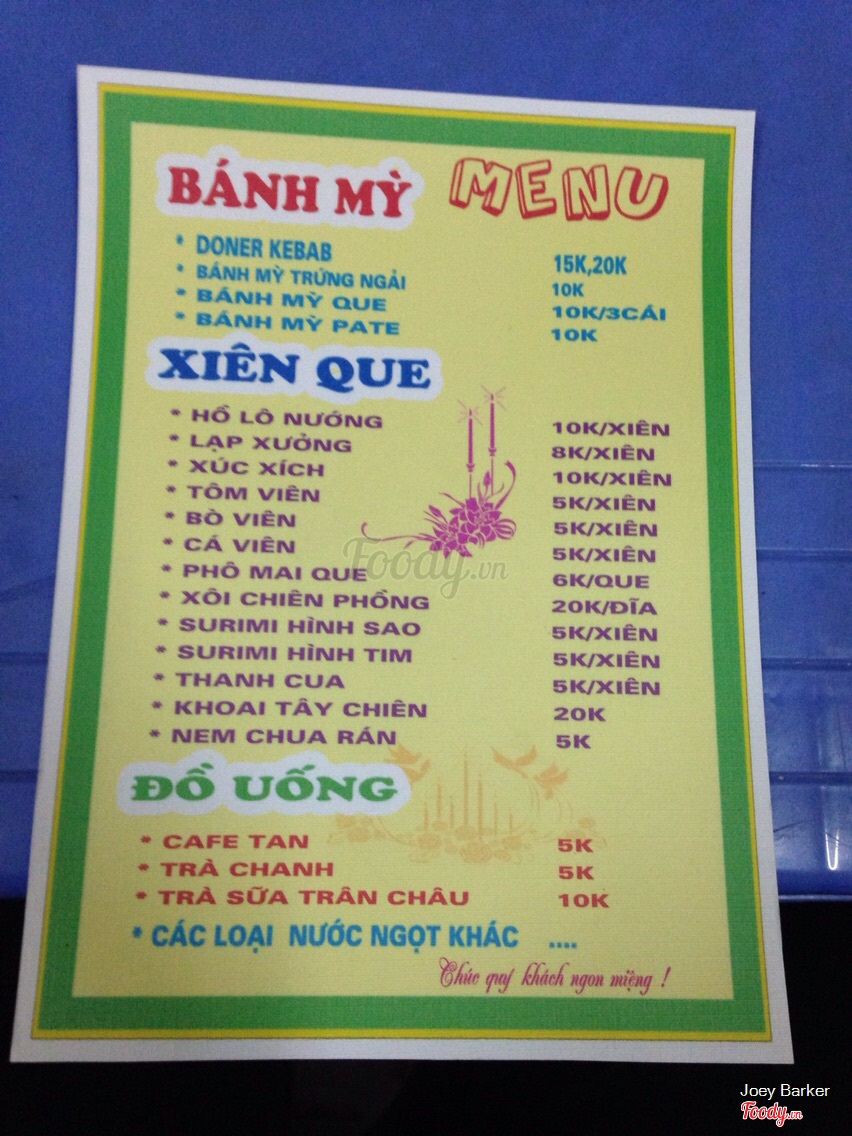 BÁNH MỲ MENU
* DONER KEBAB 15K,20K
* BÁNH MỲ TRỨNG NGẢI 10K
* BÁNH MỲ QUE 10K/3CÁI
* BÁNH MỲ PATE 10K
XIÊN QUE
* HỒ LÔ NƯỚNG 10K/XIÊN
* LẠP XƯỞNG 8K/XIÊN
* XÚC XÍCH 10K/XIÊN
* TÔM VIÊN 5K/XIÊN
* BÒ VIÊN 5K/XIÊN
* CÁ VIÊN 5K/XIÊN
* PHÔ MAI QUE 6K/QUE
* XÔI CHIÊN PHỒNG 20K/ĐĨA
* SURIMI HÌNH SAO 5K/XIÊN
* SURIMI HÌNH TIM 5K/XIÊN
* THANH CUA 5K/XIÊN
* KHOAI TÂY CHIÊN 20K
* NEM CHUA RÁN 5K
ĐỒ UỐNG
* CAFE TAN 5K
* TRÀ CHANH 5K
* TRÀ SỮA TRÂN CHÂU 10K
* CÁC LOẠI NƯỚC NGỌT KHÁC ....
Chúc quý khách ngon miệng !
Foody.vn
Joey Barker
Foody.vn